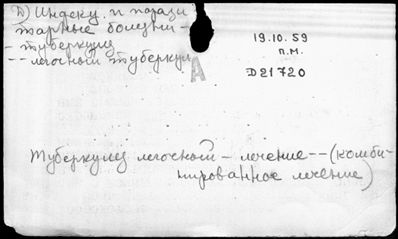 D) Инфекц. и парази
тарные болезни -
- туберкулез
-- легочный туберкул
19.10.59
п.м.
D21720
А
Туберкулез легочный - лечение -- (комби-
нированное лечение)